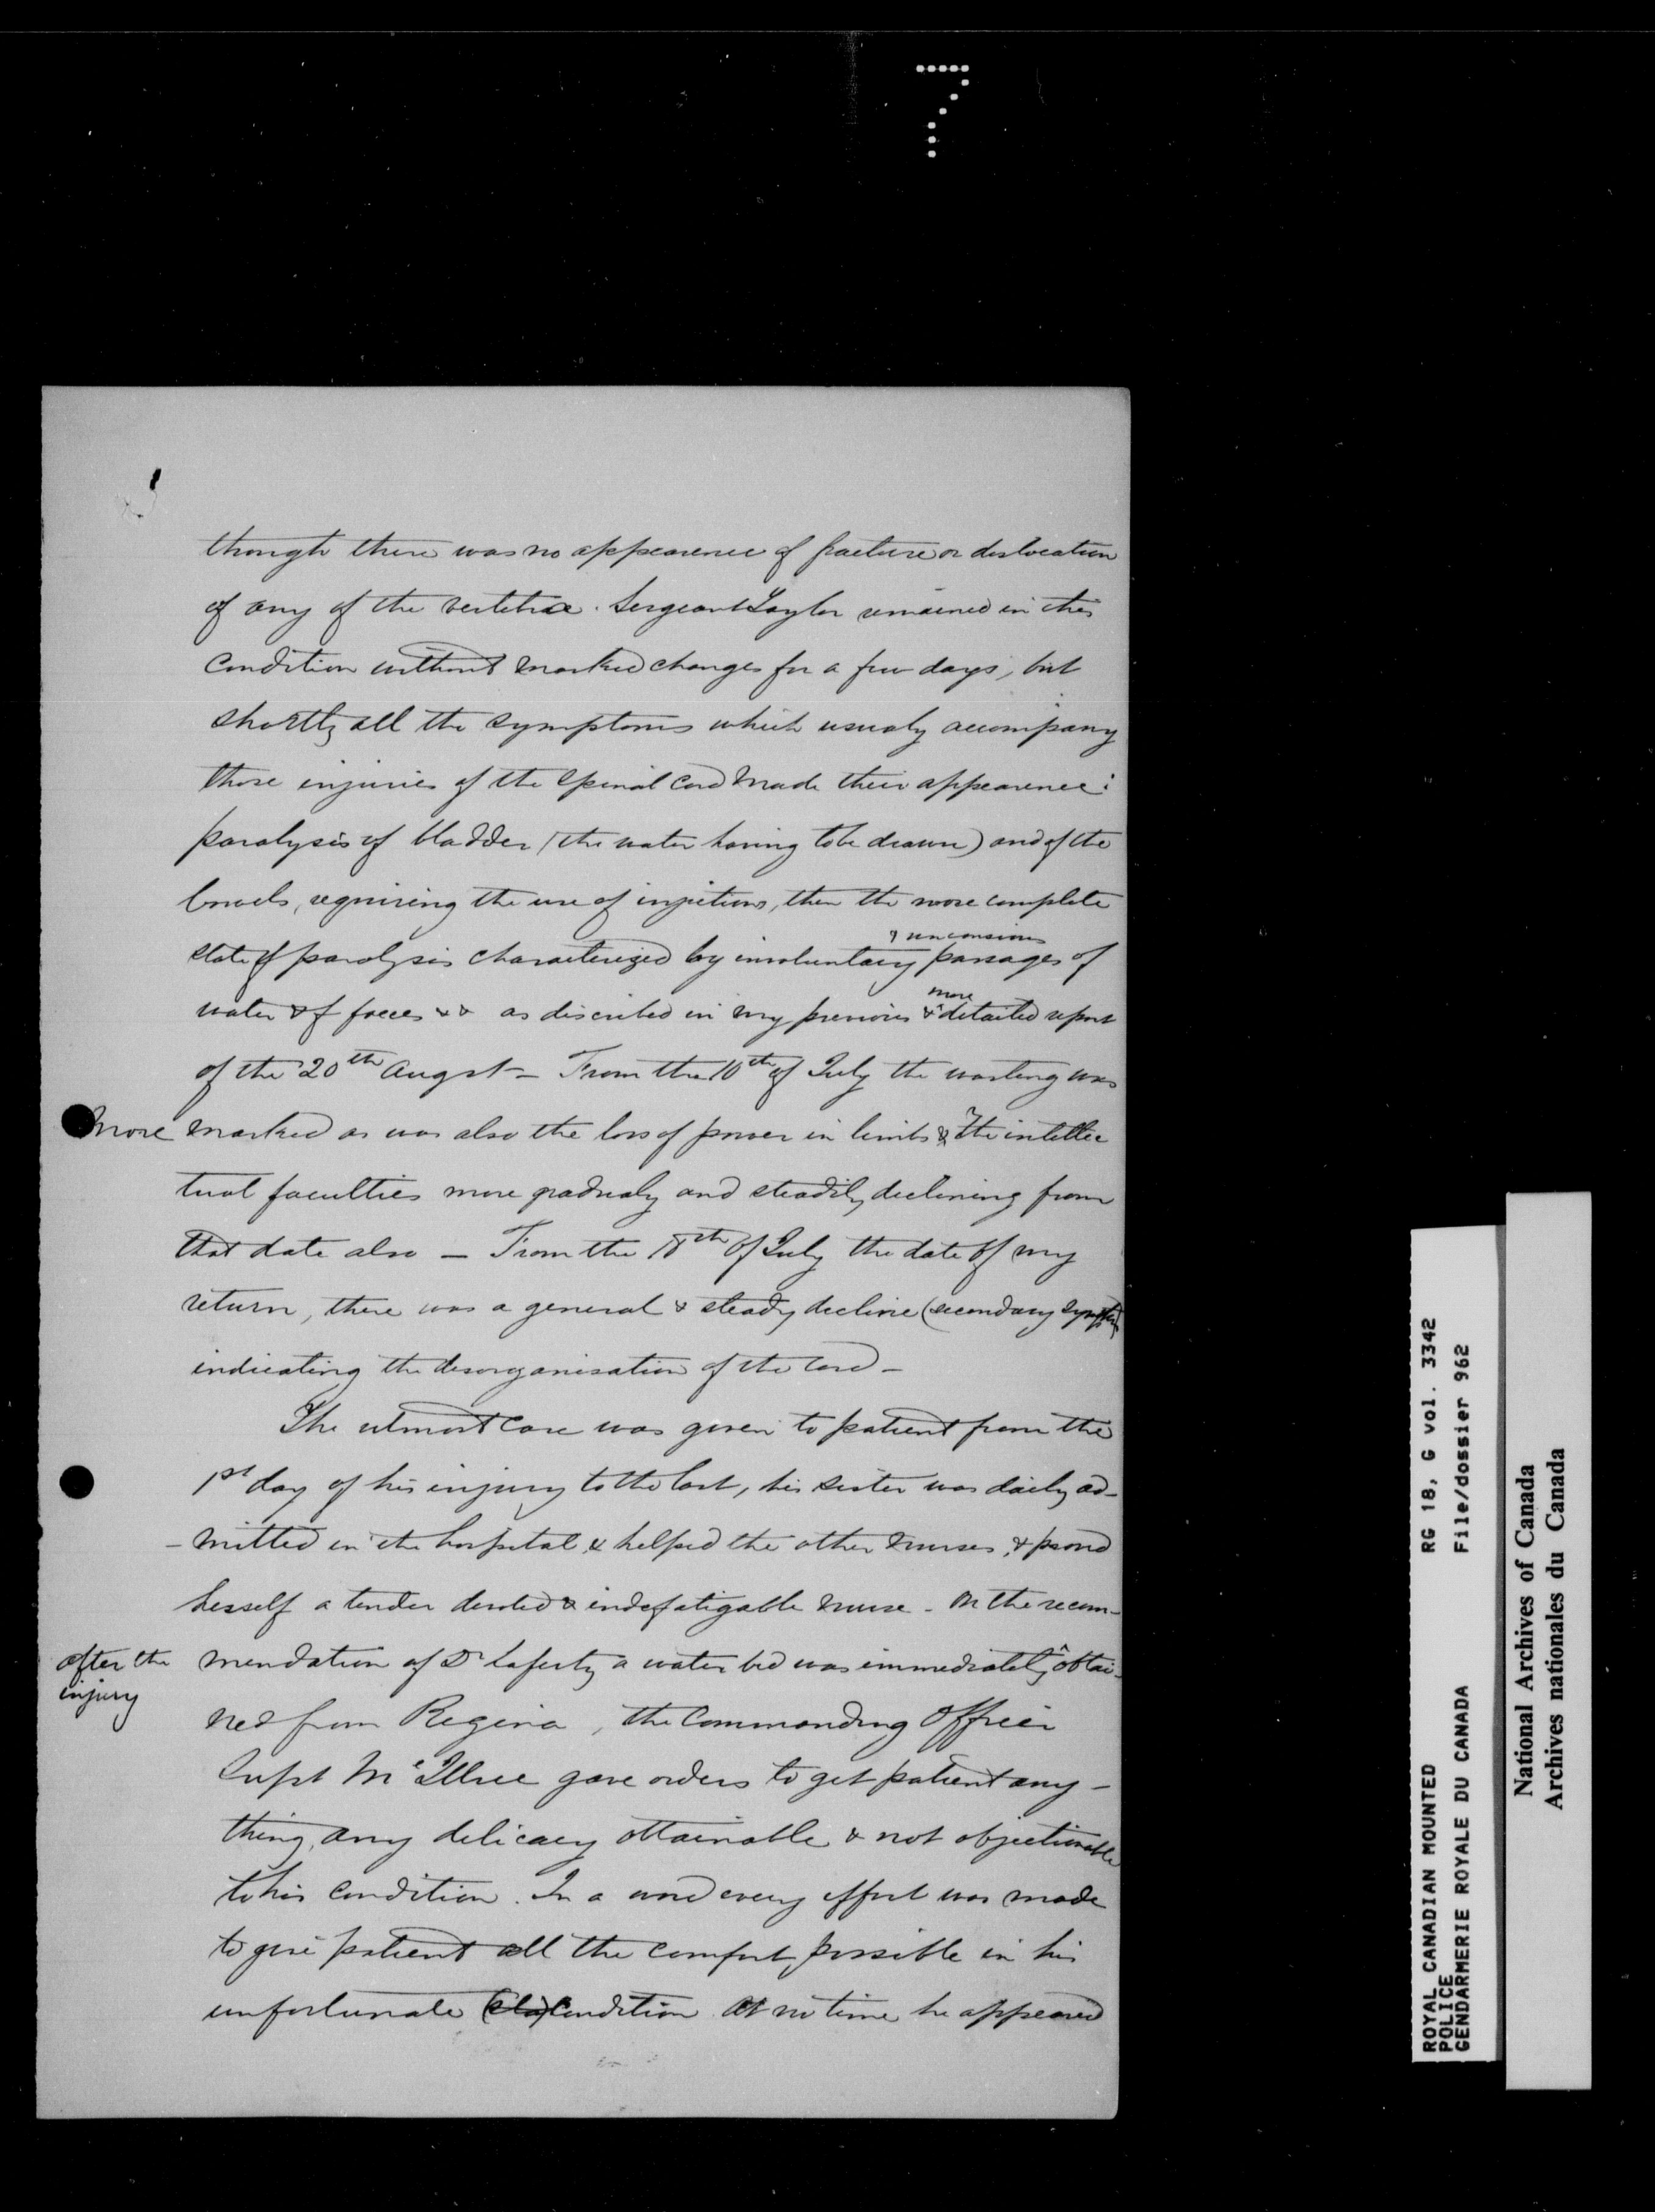 7
though there was no appearence of fracture or dislocation
of any of the vertebrae. Sergeant Taylor remained in this
condition without marked changes for a few days, but
shortly all the symptoms which usualy accompany
those injuries of the spinal cord made their appearence:
paralysis of bladder (the water having to be drawn) and of the
bowels, requiring the use of injections, then the more complete
& unconsious
state of paralysis characterized by involuntary passages of
more
water & of foeces && as discribed in my previous & detailed report
of the 20th Augst – From the 10th of July the wasting was
more marked as was also the loss of power in limbs & the intellec
tual faculties more gradualy and steadily declining from
that date also – From the 18th of July the date of my
return, there was a general & steady decline (secondary symptoms)
indicating the disorganisation of the cord –
The utmost care was given to patient from the
1st day of his injury to the last, his sister was daily ad-
-mitted in the hospital & helped the other nurses, & proved
herself a tender devoted & indefatigable nurse – On the recom-
after the injury
mendation of Dr Lafferty a water bed was immediately^obtai-
ned from Regina, the Commanding Officer
Supt McIllree gave orders to get patient any-
thing, any delicacy attainable & not objectionable
to his condition. In a word every effort was made
to give patient all the comfort possible in his
unfortunate (sta) condition At no time he appeared
ROYAL CANADIAN MOUNTED POLICE
GENDARMERIE ROYALE DU CANADA
RG 18, G vol. 3342
File/dossier 962
National Archives of Canada
Archives nationales du Canada